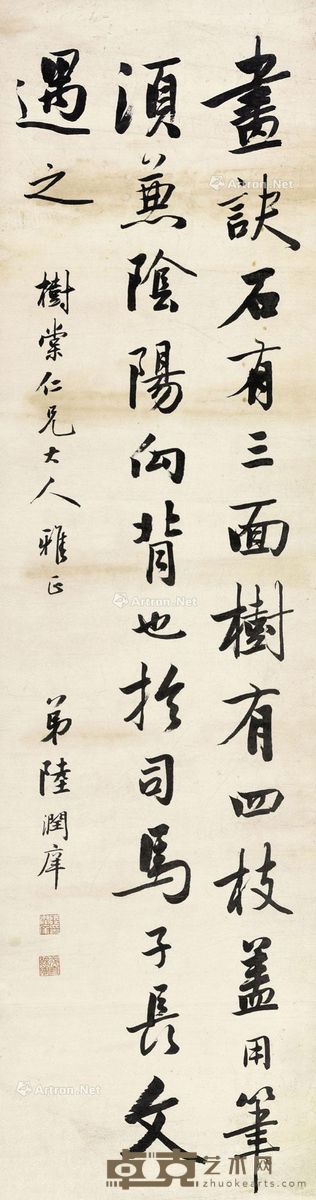 畫訣石有三面樹有四枝蓋用筆
須兼陰陽向背也於司馬子長文
遇之
樹棠仁兄大人雅正
弟陸潤庠
Artron.Net
Artron.Net
Artron.Net
卓克艺术网
www.zhuokearts.com